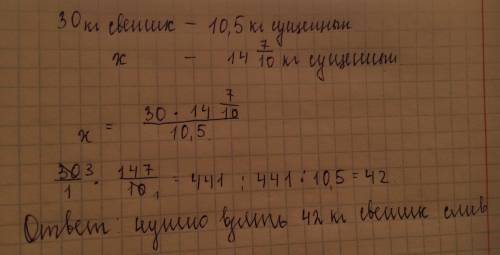 30 кг свежих – 10,5 кг сушенных
x – 14 7/10 кг сушенных
x = (30 · 14 7/10) / 10,5
30/1 3 · 147/10 1 = 441 ; 441 : 10,5 = 42
Ответ: нужно взять 42 кг свежих слив